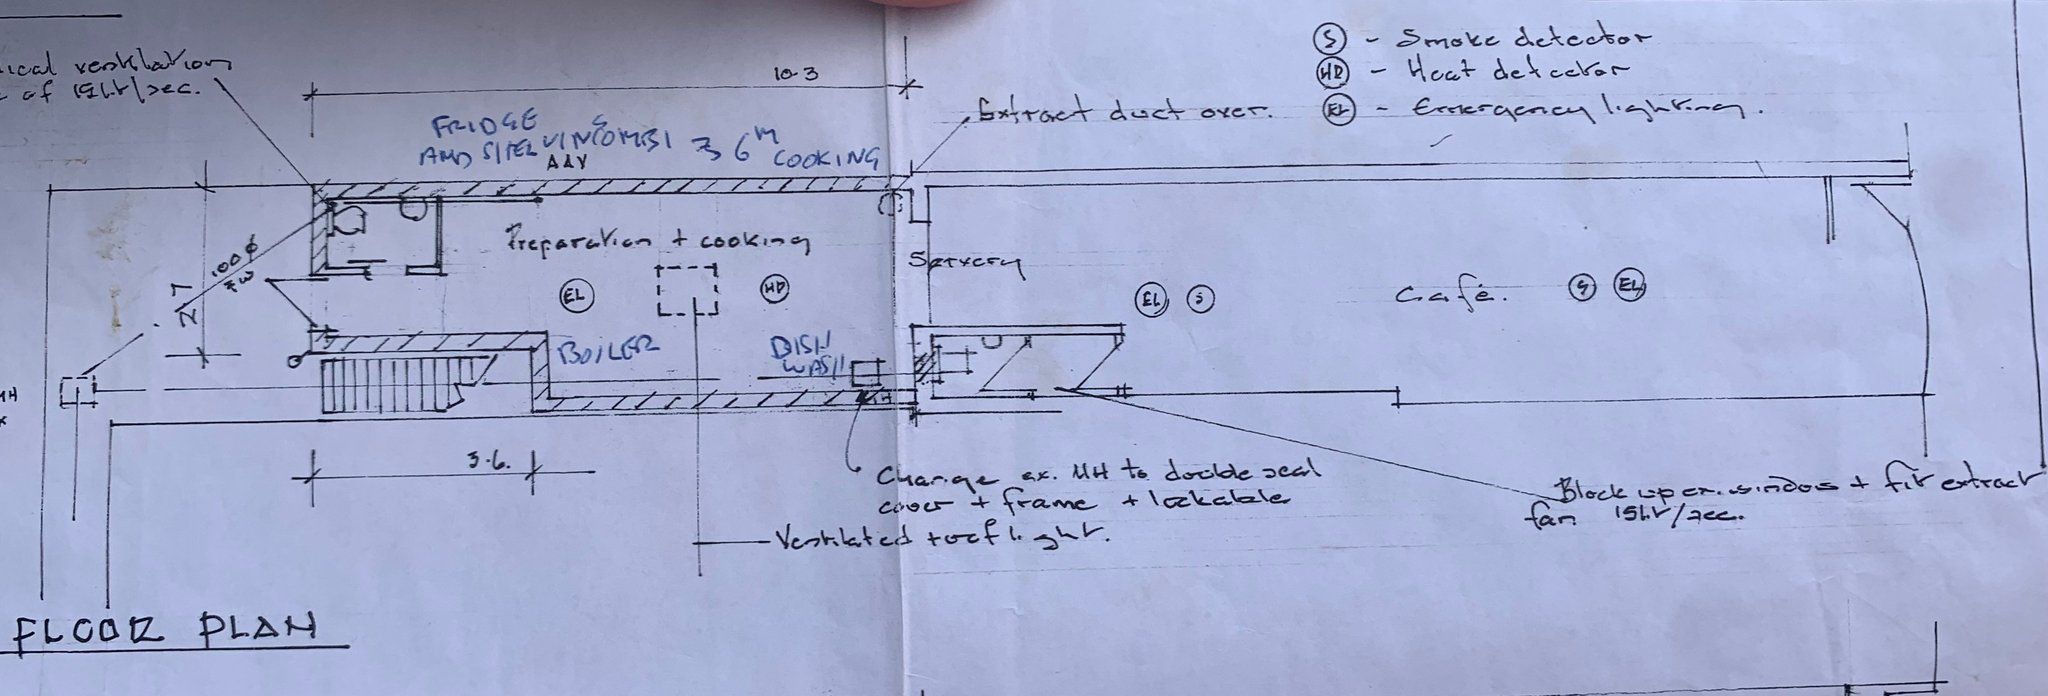 ical ventilation
of 15lt/sec.
10-3
S - Smoke detector
HD - Heat detector
EL - Emergency lighting.
Extract duct over.
FRIDGE
AND
COMBI 6M COOKING
AAV
100 ϕ
2.7
Preparation + cooking
Servery
EL
HD
EL S
Café.
S EL
BOILER
DISH
WASH
MH
3.6.
Change ex. MH to double seal
cover + frame + lockable
Ventilated rooflight.
Block up ex. window + fit extract
fan 15lt/sec.
FLOOR PLAN